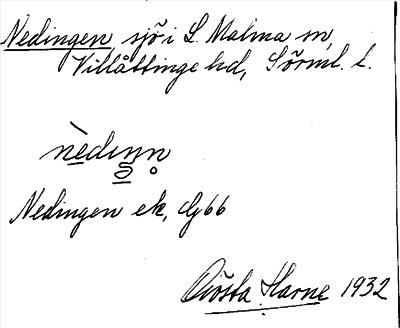 Nedingen, sjö i L. Malma sn,
Villåttinge hd, Sörml. l.
nèdıŋn̥
Nedingen ek, Gg66
Gösta Harne 1932